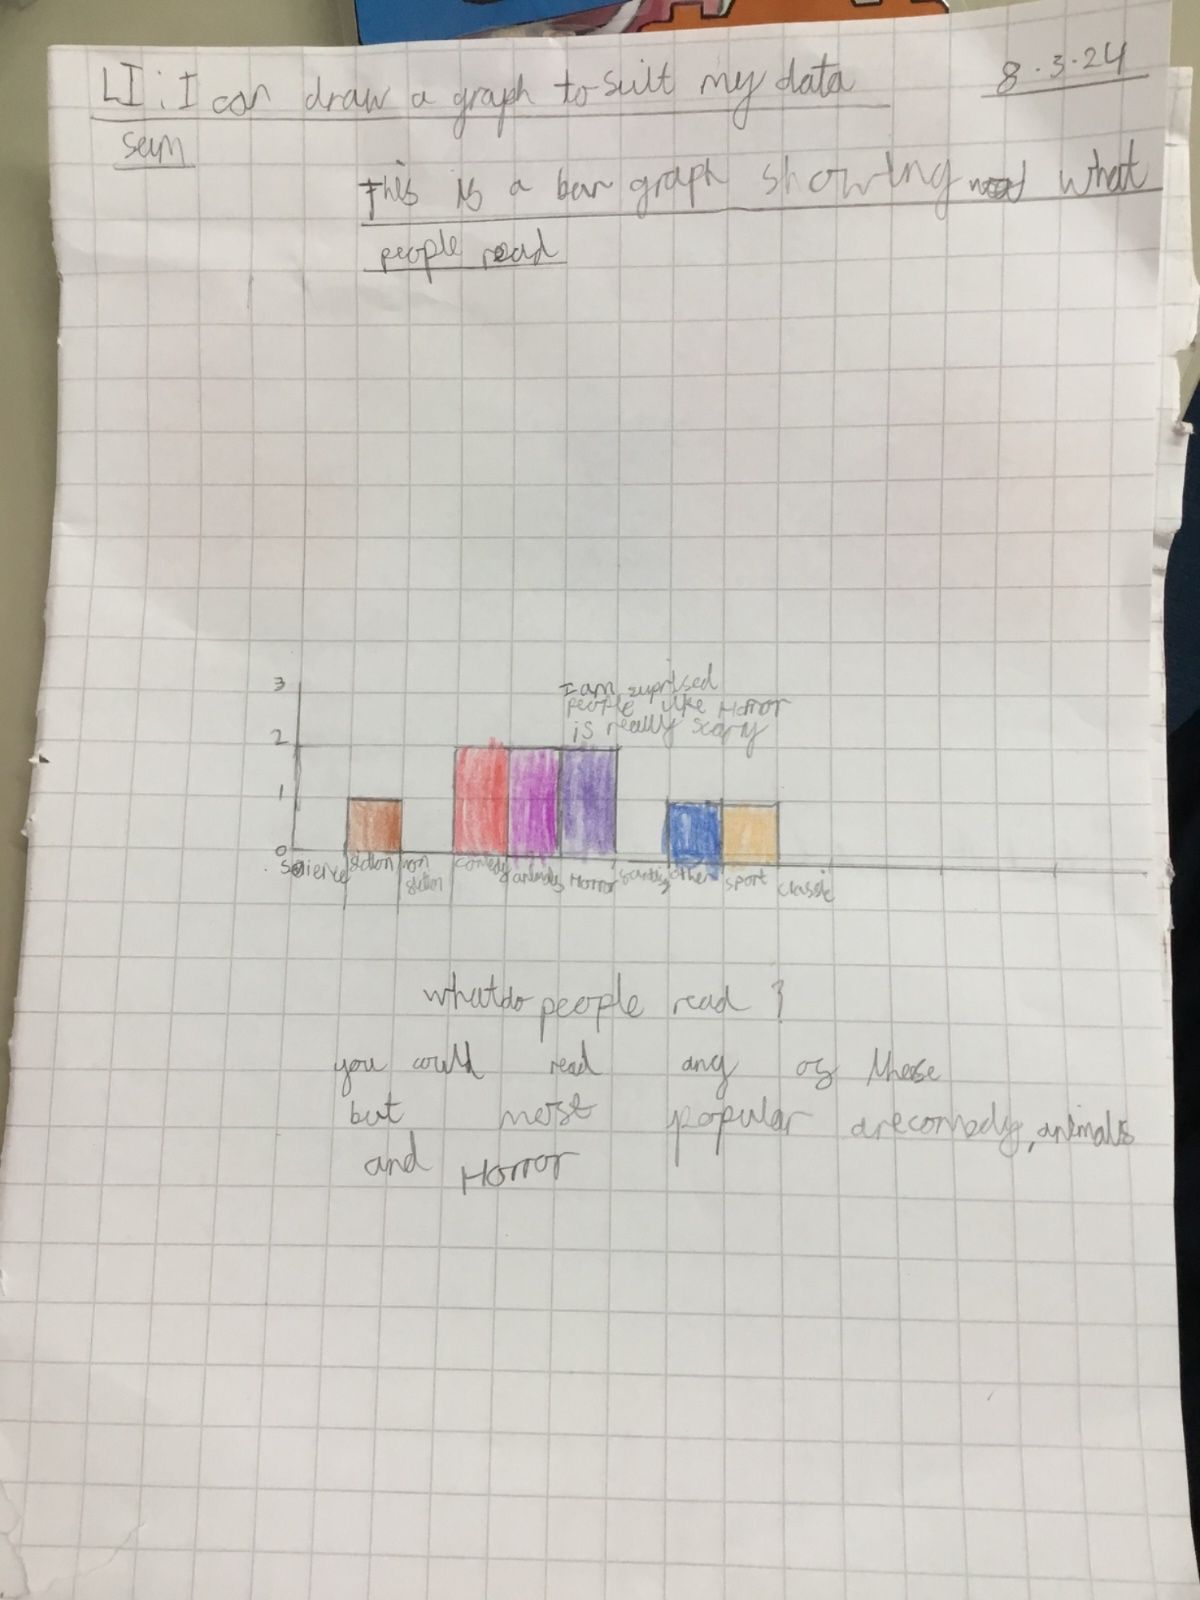 LI: I can draw a graph to suit my data
8.3.24
This is a bar graph showing what
people read
3
I am suprised
people like Horror
is really scary
2
1
0
Science fiction non fiction comedy animals Horror other sport classic
what do people read ?
you could read any of these
but most popular are comedy, animals
and Horror